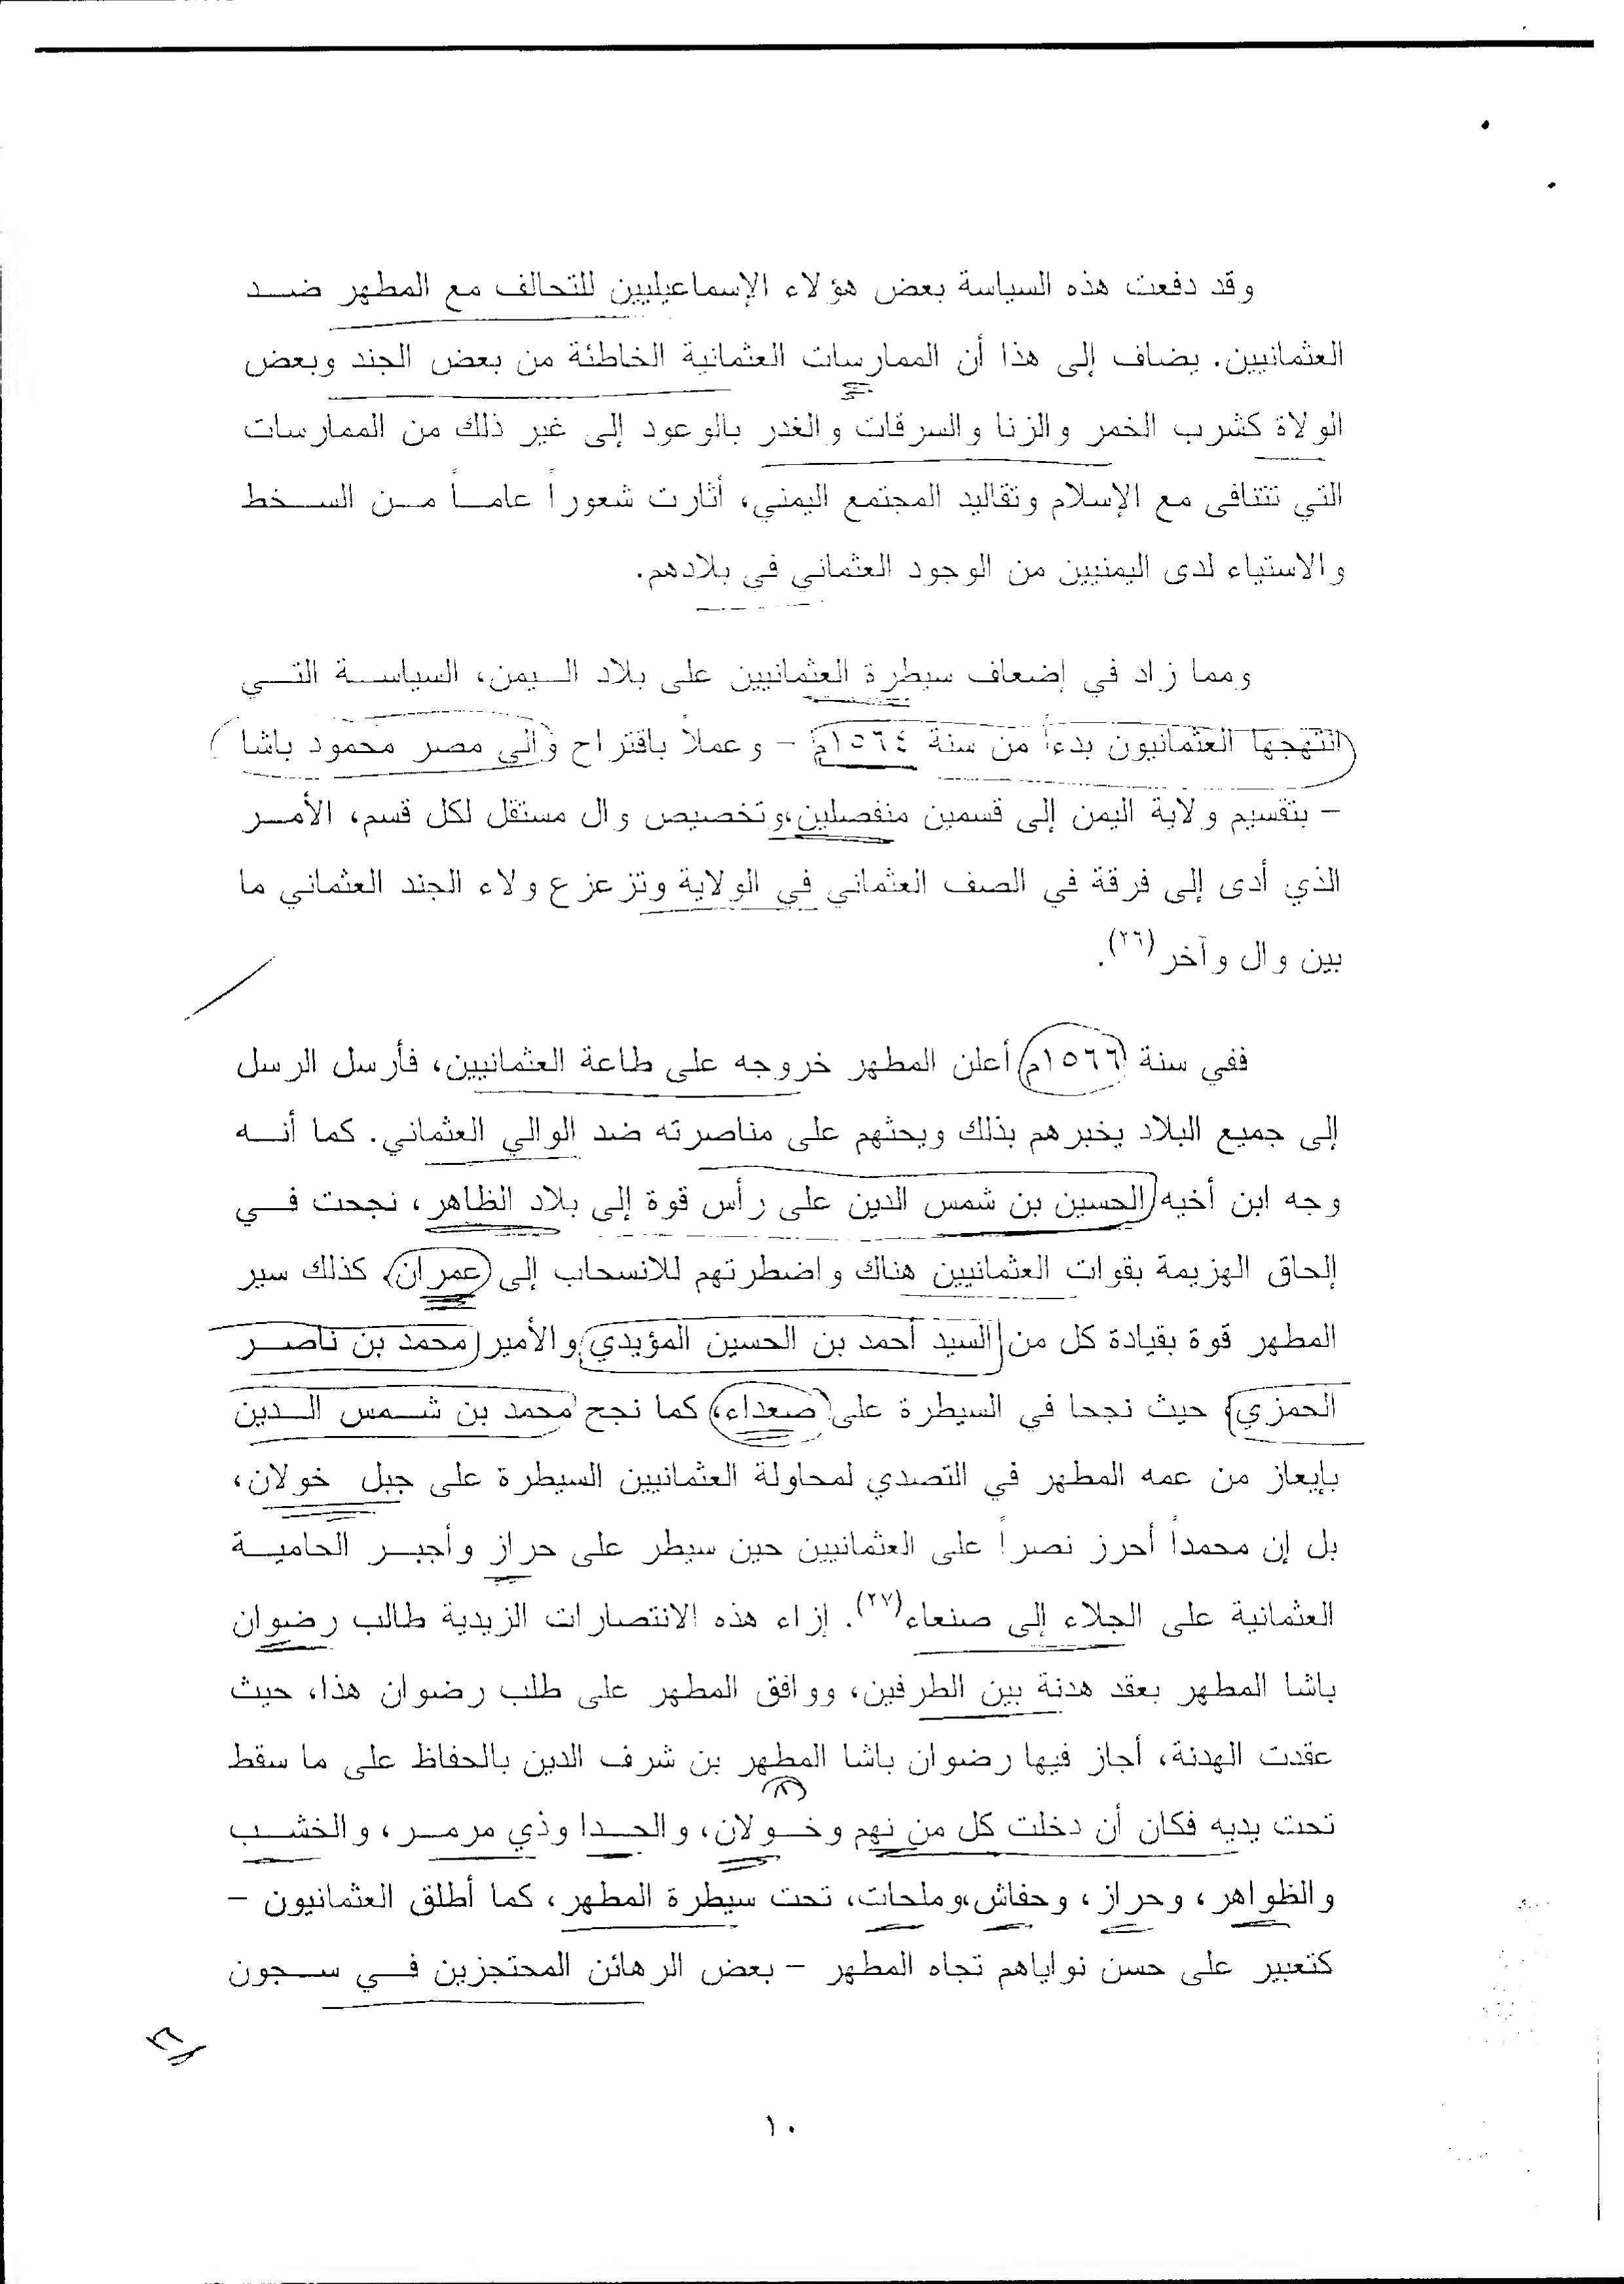 وقد دفعت هذه السياسة بعض هؤلاء الإسماعيليين للتحالف مع المطهر ضد
العثمانيين. يضاف إلى هذا أن الممارسات العثمانية الخاطئة من بعض الجند وبعض
الولاة كشرب الخمر والزنا والسرقات والغدر بالوعود إلى غير ذلك من الممارسات
التي تتنافى مع الإسلام وتقاليد المجتمع اليمني، أثارت شعوراً عاماً من السخط
والاستياء لدى اليمنيين من الوجود العثماني في بلادهم.
ومما زاد في إضعاف سيطرة العثمانيين على بلاد اليمن، السياسة التي
انتهجها العثمانيون بدءاً من سنة ١٥٦٤م – وعملاً باقتراح والي مصر محمود باشا
– بتقسيم ولاية اليمن إلى قسمين منفصلين، وتخصيص وال مستقل لكل قسم، الأمر
الذي أدى إلى فرقة في الصف العثماني في الولاية وتزعزع ولاء الجند العثماني ما
بين وال وآخر(٢٦).
ففي سنة ١٥٦٦م أعلن المطهر خروجه على طاعة العثمانيين، فأرسل الرسل
إلى جميع البلاد يخبرهم بذلك ويحثهم على مناصرته ضد الوالي العثماني. كما أنه
وجه ابن أخيه الحسين بن شمس الدين على رأس قوة إلى بلاد الظاهر، نجحت في
إلحاق الهزيمة بقوات العثمانيين هناك واضطرتهم للانسحاب إلى عمران، كذلك سير
المطهر قوة بقيادة كل من السيد أحمد بن الحسين المؤيدي والأمير محمد بن ناصر
الحمزي، حيث نجحا في السيطرة على صعداء، كما نجح محمد بن شمس الدين
بإيعاز من عمه المطهر في التصدي لمحاولة العثمانيين السيطرة على جبل خولان،
بل إن محمداً أحرز نصراً على العثمانيين حين سيطر على حراز وأجبر الحامية
العثمانية على الجلاء إلى صنعاء(٢٧). إزاء هذه الانتصارات الزيدية طالب رضوان
باشا المطهر بعقد هدنة بين الطرفين، ووافق المطهر على طلب رضوان هذا، حيث
عقدت الهدنة، أجاز فيها رضوان باشا المطهر بن شرف الدين بالحفاظ على ما سقط
تحت يديه فكان أن دخلت كل من نهم وخولان، والحدا وذي مرمر، والخشب
والظواهر، وحراز، وحفاش، وملحات، تحت سيطرة المطهر، كما أطلق العثمانيون –
كتعبير على حسن نواياهم تجاه المطهر – بعض الرهائن المحتجزين في سجون
١٠